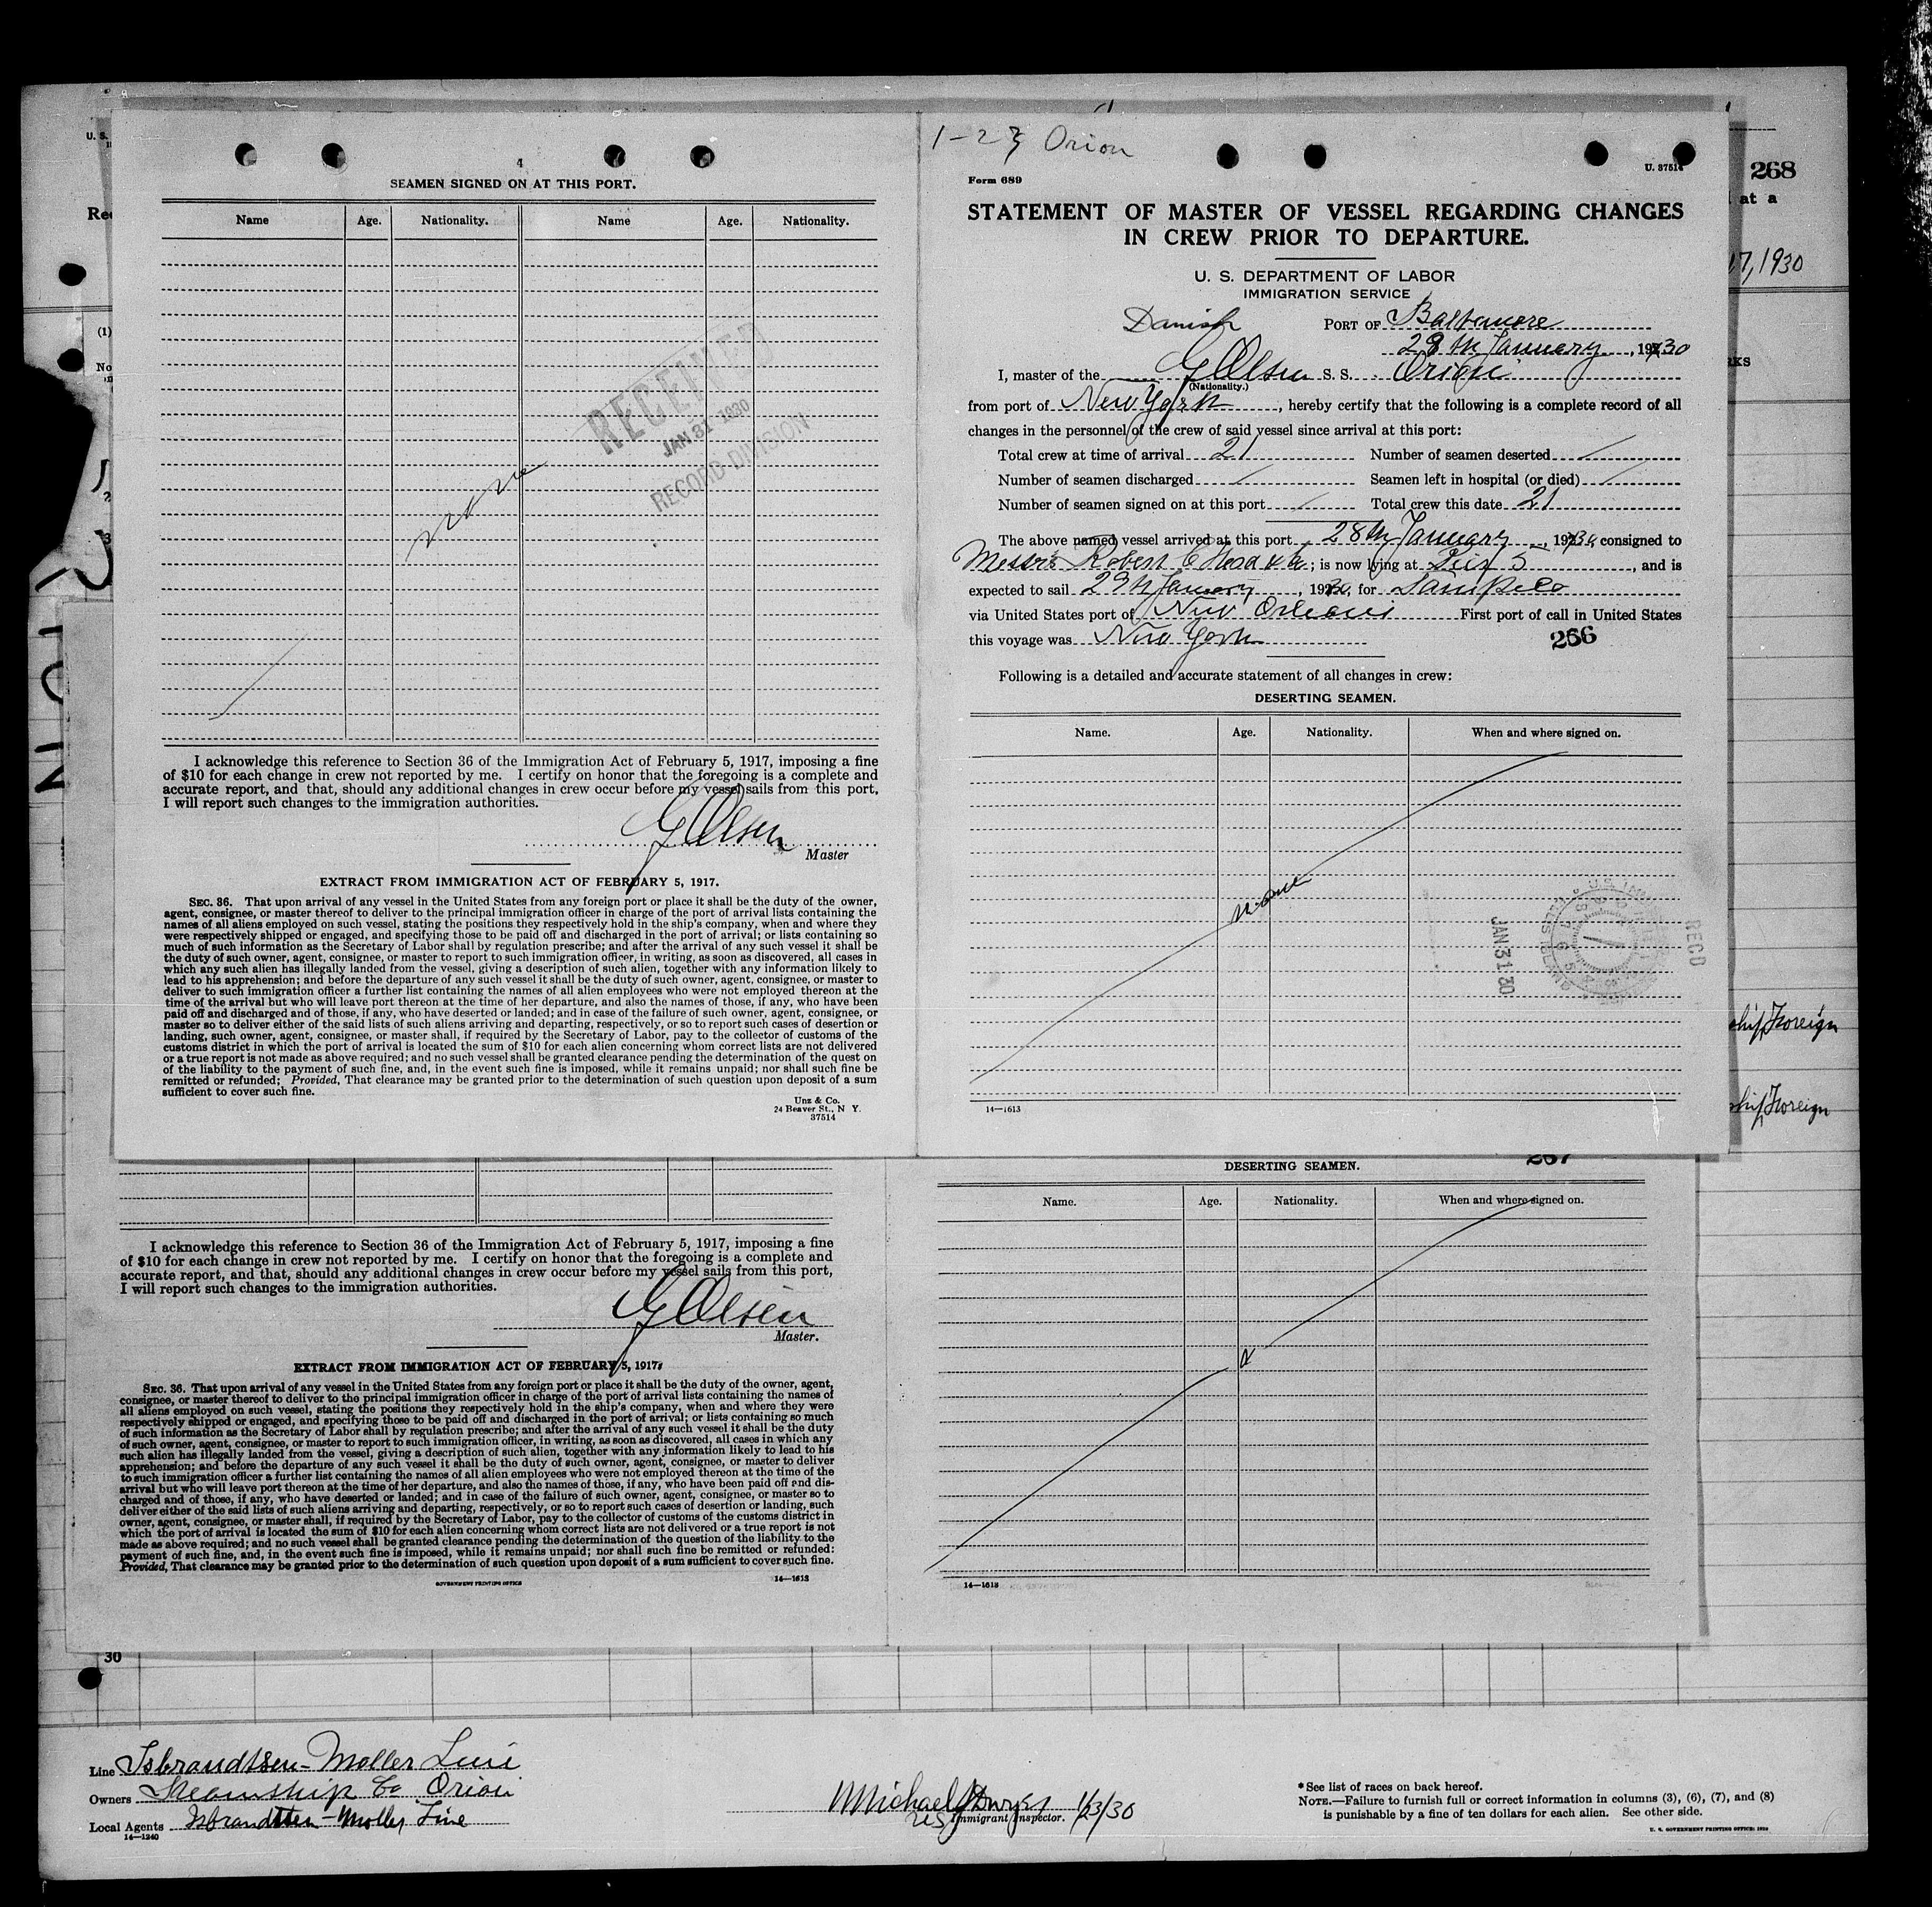 4
SEAMEN SIGNED ON AT THIS PORT.
Name Age. Nationality. Name Age. Nationality.
RECEIVED
JAN 31 1930
RECORD DIVISION
none
I acknowledge this reference to Section 36 of the Immigration Act of February 5, 1917, imposing a fine
of $10 for each change in crew not reported by me. I certify on honor that the foregoing is a complete and
accurate report, and that, should any additional changes in crew occur before my vessel sails from this port,
I will report such changes to the immigration authorities.
G Olsen
Master
EXTRACT FROM IMMIGRATION ACT OF FEBRUARY 5, 1917.
SEC. 36. That upon arrival of any vessel in the United States from any foreign port or place it shall be the duty of the owner,
agent, consignee, or master thereof to deliver to the principal immigration officer in charge of the port of arrival lists containing the
names of all aliens employed on such vessel, stating the positions they respectively hold in the ship's company, when and where they
were respectively shipped or engaged, and specifying those to be paid off and discharged in the port of arrival; or lists containing so
much of such information as the Secretary of Labor shall by regulation prescribe; and after the arrival of any such vessel it shall be
the duty of such owner, agent, consignee, or master to report to such immigration officer, in writing, as soon as discovered, all cases in
which any such alien has illegally landed from the vessel, giving a description of such alien, together with any information likely to
lead to his apprehension; and before the departure of any such vessel it shall be the duty of such owner, agent, consignee, or master to
deliver to such immigration officer a further list containing the names of all alien employees who were not employed thereon at the
time of the arrival but who will leave port thereon at the time of her departure, and also the names of those, if any, who have been
paid off and discharged and of those, if any, who have deserted or landed; and in case of the failure of such owner, agent, consignee, or
master so to deliver either of the said lists of such aliens arriving and departing, respectively, or so to report such cases of desertion or
landing, such owner, agent, consignee, or master shall, if required by the Secretary of Labor, pay to the collector of customs of the
customs district in which the port of arrival is located the sum of $10 for each alien concerning whom correct lists are not delivered
or a true report is not made as above required; and no such vessel shall be granted clearance pending the determination of the quest on
of the liability to the payment of such fine, and, in the event such fine is imposed, while it remains unpaid; nor shall such fine be
remitted or refunded; Provided, That clearance may be granted prior to the determination of such question upon deposit of a sum
sufficient to cover such fine.
Unz & Co.
24 Beaver St., N Y.
37514
1-27 Orion
Form 689
U. 37514
STATEMENT OF MASTER OF VESSEL REGARDING CHANGES
IN CREW PRIOR TO DEPARTURE.
U. S. DEPARTMENT OF LABOR
IMMIGRATION SERVICE
Danish PORT OF Baltimore
28th January, 1930
I, master of the G Olsen S. S. Orion
(Nationality.)
from port of New York, hereby certify that the following is a complete record of all
changes in the personnel of the crew of said vessel since arrival at this port:
Total crew at time of arrival 21 Number of seamen deserted /
Number of seamen discharged / Seamen left in hospital (or died) /
Number of seamen signed on at this port / Total crew this date 21
The above named vessel arrived at this port 28th January, 1930, consigned to
Messrs Robert C ; is now lying at Pier 5, and is
expected to sail 29th January, 1930, for
via United States port of New Orleans First port of call in United States
this voyage was New York
266
Following is a detailed and accurate statement of all changes in crew:
DESERTING SEAMEN.
Name. Age. Nationality. When and where signed on.
none
JAN 31 30
RECD
14—1613
268
at a
17, 1930
ship, Foreign
ship, Foreign
I acknowledge this reference to Section 36 of the Immigration Act of February 5, 1917, imposing a fine
of $10 for each change in crew not reported by me. I certify on honor that the foregoing is a complete and
accurate report, and that, should any additional changes in crew occur before my vessel sails from this port,
I will report such changes to the immigration authorities.
G Olsen
Master.
EXTRACT FROM IMMIGRATION ACT OF FEBRUARY 5, 1917.
SEC. 36. That upon arrival of any vessel in the United States from any foreign port or place it shall be the duty of the owner, agent,
consignee, or master thereof to deliver to the principal immigration officer in charge of the port of arrival lists containing the names of
all aliens employed on such vessel, stating the positions they respectively hold in the ship's company, when and where they were
respectively shipped or engaged, and specifying those to be paid off and discharged in the port of arrival; or lists containing so much
of such information as the Secretary of Labor shall by regulation prescribe; and after the arrival of any such vessel it shall be the duty
of such owner, agent, consignee, or master to report to such immigration officer, in writing, as soon as discovered, all cases in which any
such alien has illegally landed from the vessel, giving a description of such alien, together with any information likely to lead to his
apprehension; and before the departure of any such vessel it shall be the duty of such owner, agent, consignee, or master to deliver
to such immigration officer a further list containing the names of all alien employees who were not employed thereon at the time of the
arrival but who will leave port thereon at the time of her departure, and also the names of those, if any, who have been paid off and dis-
charged and of those, if any, who have deserted or landed; and in case of the failure of such owner, agent, consignee, or master so to
deliver either of the said lists of such aliens arriving and departing, respectively, or so to report such cases of desertion or landing, such
owner, agent, consignee, or master shall, if required by the Secretary of Labor, pay to the collector of customs of the customs district in
which the port of arrival is located the sum of $10 for each alien concerning whom correct lists are not delivered or a true report is not
made as above required; and no such vessel shall be granted clearance pending the determination of the question of the liability to the
payment of such fine, and, in the event such fine is imposed, while it remains unpaid; nor shall such fine be remitted or refunded:
Provided, That clearance may be granted prior to the determination of such question upon deposit of a sum sufficient to cover such fine.
GOVERNMENT PRINTING OFFICE 14—1613
267
DESERTING SEAMEN.
Name. Age. Nationality. When and where signed on.
14—1613
30
Line Isbrandtsen-Moller Line
Owners Steamship Co Orion
Local Agents Isbrandtsen-Moller Line
14—1240
Michael 1/23/30
US Immigrant Inspector.
*See list of races on back hereof.
NOTE.—Failure to furnish full or correct information in columns (3), (6), (7), and (8)
is punishable by a fine of ten dollars for each alien. See other side.